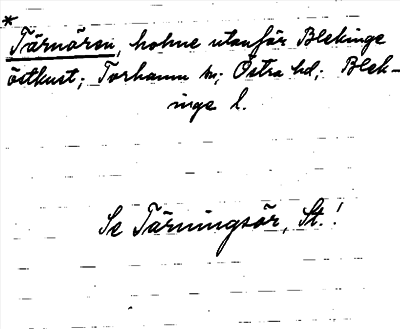 *
Tärnören, holme utanför Blekinge
östkust; Torhamn sn; Östra hd; Blek-
inge l.
Se Tärningsör, St.!